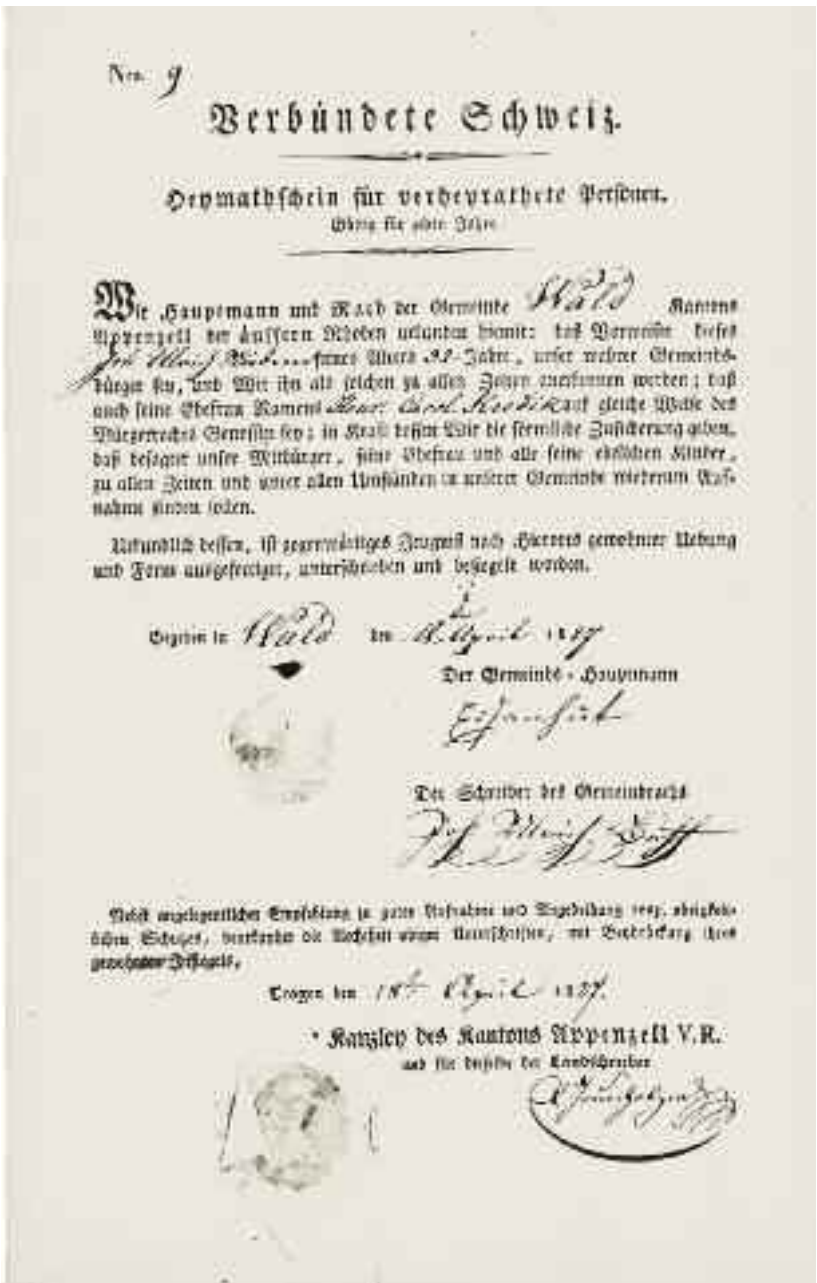 Nro. 9
Verbündete Schweiz.
Heymathschein für verheyrathete Personen.
Gültig für Jahre
Wir Hauptmann und Rath der Gemeinde Wald Kantons
Appenzell der äussern Rhoden urkunden hiemit: das Vorweiser dieses
Joh Ulrich seines Alters Jahre, unser wahrer Gemeinds-
bürger sey, und Wir ihn als solchen zu allen Zeiten anerkennen werden; daß
auch seine Ehefrau Namens Carol. auf gleiche Weise des
Bürgerrechts Genössin sey; in Kraft dessen Wir die förmliche Zusicherung geben,
daß besagter unser Mitbürger, seine Ehefrau und alle seine ehelichen Kinder,
zu allen Zeiten und unter allen Umständen in unserer Gemeinde wiederum Auf-
nahme finden sollen.
Urkundlich dessen, ist gegenwärtiges Zeugniß nach Hierorts gewohnter Uebung
und Form ausgefertiget, unterschrieben und besiegelt worden.
Gegeben in Wald den April 1827
Der Gemeinds-Hauptmann
Eisenhut
Der Schreiber des Gemeindraths
Joh Ulrich
Nebst angelegentlicher Empfehlung zu guter Aufnahme und Angedeihung resp. obrigkeit-
lichen Schutzes, beurkundet die Aechtheit obiger Unterschriften, mit Beydrückung ihres
gewohnten Insiegels,
Trogen den 18t April 1827.
Kanzley des Kantons Appenzell V. R.
und für dieselbe der Landschreiber